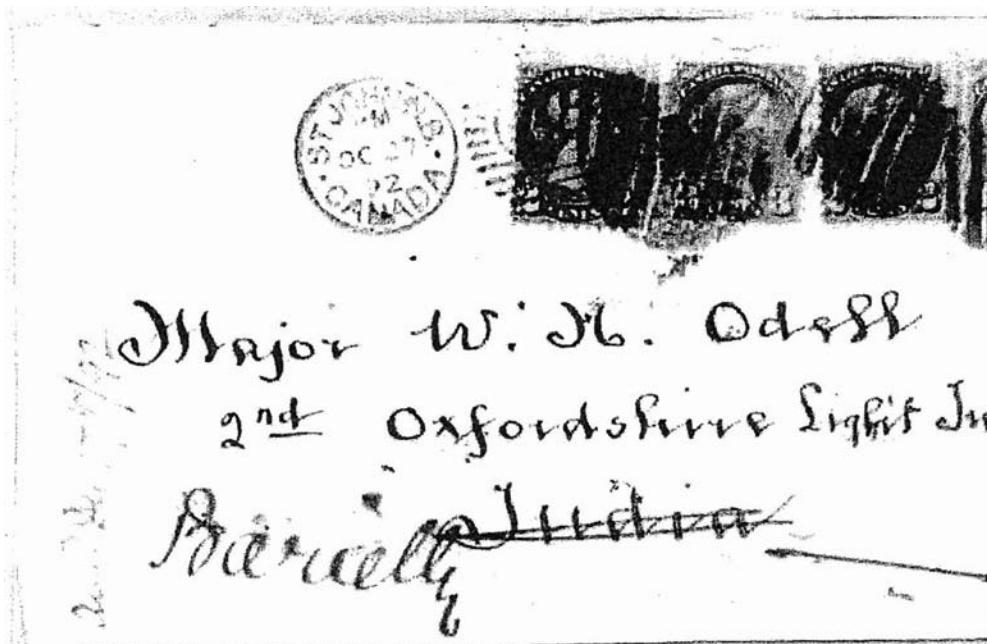 ST JOHN N.B.
OC 27
92
CANADA
Major W. H. Odell
2nd Oxfordshire Light In
Bareilly India